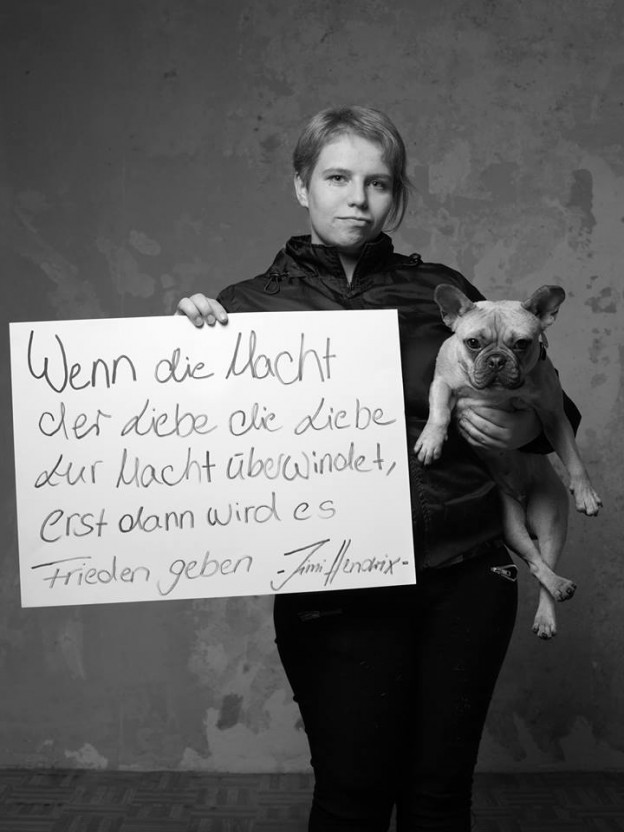 Wenn die Macht
der Liebe die Liebe
zur Macht überwindet,
erst dann wird es
Frieden geben -Jimi Hendrix-